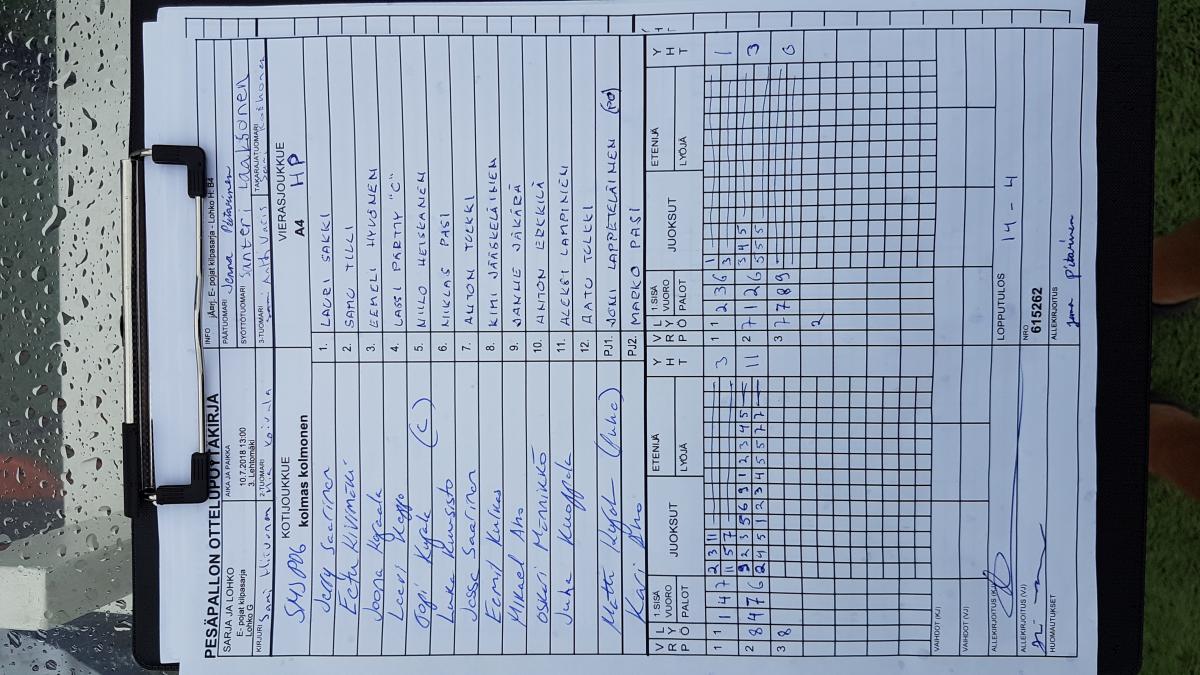 PESÄPALLON OTTELUPÖYTÄKIRJA
SARJA JA LOHKO
E- pojat kilpasarja
Lohko G
AIKA JA PAIKKA
10.7.2018 13:00
3. Lehtomäki
INFO jAmj. E- pojat kilpasarja - Lohko H: B4
PÄÄTUOMARI Jenna Pitarinen
SYÖTTÖTUOMARI Santeri Laaksonen
KIRJURI Sami Hiivonen
2-TUOMARI Mia Koivula
3-TUOMARI
TAKARAJATUOMARI
KOTIJOUKKUE
SMJ P06 kolmas kolmonen
VIERASJOUKKUE
A4 HP
Jerry Saarinen 1. LAURI SAKKI
Eetu Kivimäki 2. SAMU TULLI
Joona 3. EEMELI HYVÖNEN
Leevi 4. LASSI PARTTY "C"
(C) 5. NIILO HEISKANEN
Luka Kuusisto 6. NIKLAS PASI
Jesse Saarinen 7. ANTON TULKKI
Eemil Kulkas 8. KIMI JÄÄSKELÄINEN
Mikael Aho 9. JANLIE JÄKÄRÄ
Oskari Männikkö 10. ANTON ERKKILÄ
Juha Kuoppala 11. ALEKSI LAMPINEN
12. AATU TULKKI
Matti (Juha) PJ1. JONI LAPPETELÄINEN (PO)
Kari Aho PJ2. MARKO PASI
V R L Y Ö 1.SISÄ VUORO PALOT JUOKSUT ETENIJÄ LYÖJÄ Y H T V R L Y Ö 1.SISÄ VUORO PALOT JUOKSUT ETENIJÄ LYÖJÄ Y H T
1 1 1 4 7 2 3 11 3 1 1 2 3 6 1 1
1 5 7 3
2 8 4 7 6 9 2 3 5 6 9 1 2 3 4 5 11 2 7 1 2 6 3 4 5 3
2 4 5 1 2 3 4 5 5 7 7 5 5 5
3 8 3 7 7 8 9 0
2
VAIHDOT (KJ)
VAIHDOT (VJ)
ALLEKIRJOITUS (KJ)
LOPPUTULOS 14 - 4
ALLEKIRJOITUS (VJ)
NRO
615262
HUOMAUTUKSET
ALLEKIRJOITUS
Jenna Pitarinen